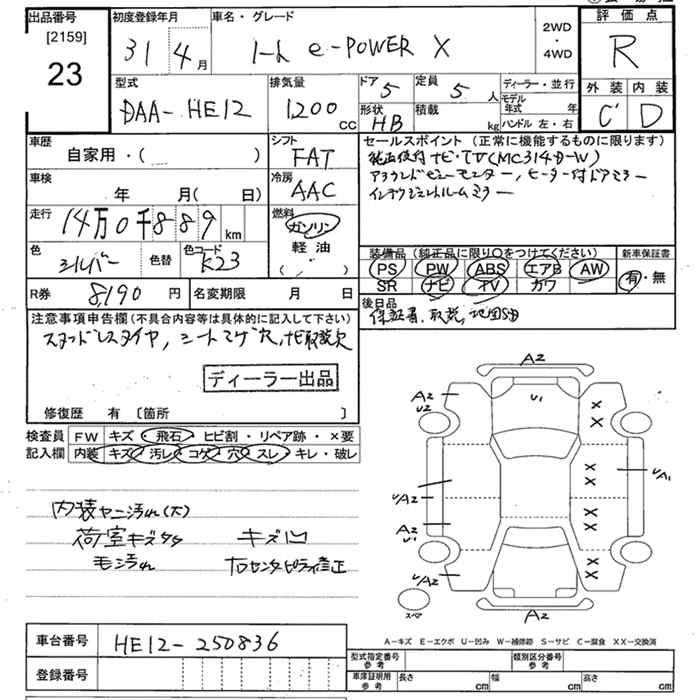 出品番号 初度登録年月 車名・グレード 2WD ・ 4WD 評価点
[2159]
23 31 4月 ノート e-POWER X R
型式 排気量 ドア 5 定員 5人 ディーラー・並行 外装 内装
DAA-HE12 1200cc 形状 HB 積載 kg モデル年式 年 ハンドル 左・右 C' D
車歴 シフト セールスポイント (正常に機能するものに限ります)
自家用・( ) FAT 純正後付ナビ・TV(MC314D-W)
車検 冷房 アラウンドビューモニター, ヒーター付ドアミラー
年 月( 日) AAC インテリジェントルームミラー
走行 燃料
14万0千889km ガソリン
色 色替 色コード 軽油 装備品 (純正品に限り○をつけてください) 新車保証書
シルバー K23 ( ) PS PW ABS エアB AW 有・無
SR ナビ TV カワ
R券 8,190円 名変期限 月 日 後日品
保証書, 取説,
注意事項申告欄 (不具合内容等は具体的に記入して下さい)
スタッドレスタイヤ, シートコゲ穴, ナビ取説欠
ディーラー出品
修復歴 有 [箇所 ]
検査員 FW キズ・飛石・ヒビ割・リペア跡・×要
記入欄 内装 キズ・汚レ・コゲ・穴・スレ・キレ・破レ
内装ヤニ汚れ(大)
荷室キズ キズ凹
毛汚れ 右センターピラー修正
A2
A2
U2
U1
U/A2
A2
U1
U/A2
U/A1
××
××
××
××
スペア
A2
A-キズ E-エクボ U-凹み W-補修跡 S-サビ C-腐食 XX-交換済
車台番号 HE12-250836
型式指定番号 参考 類別区分番号 参考
登録番号 車庫証明用 参考 長さ cm 幅 cm 高さ cm